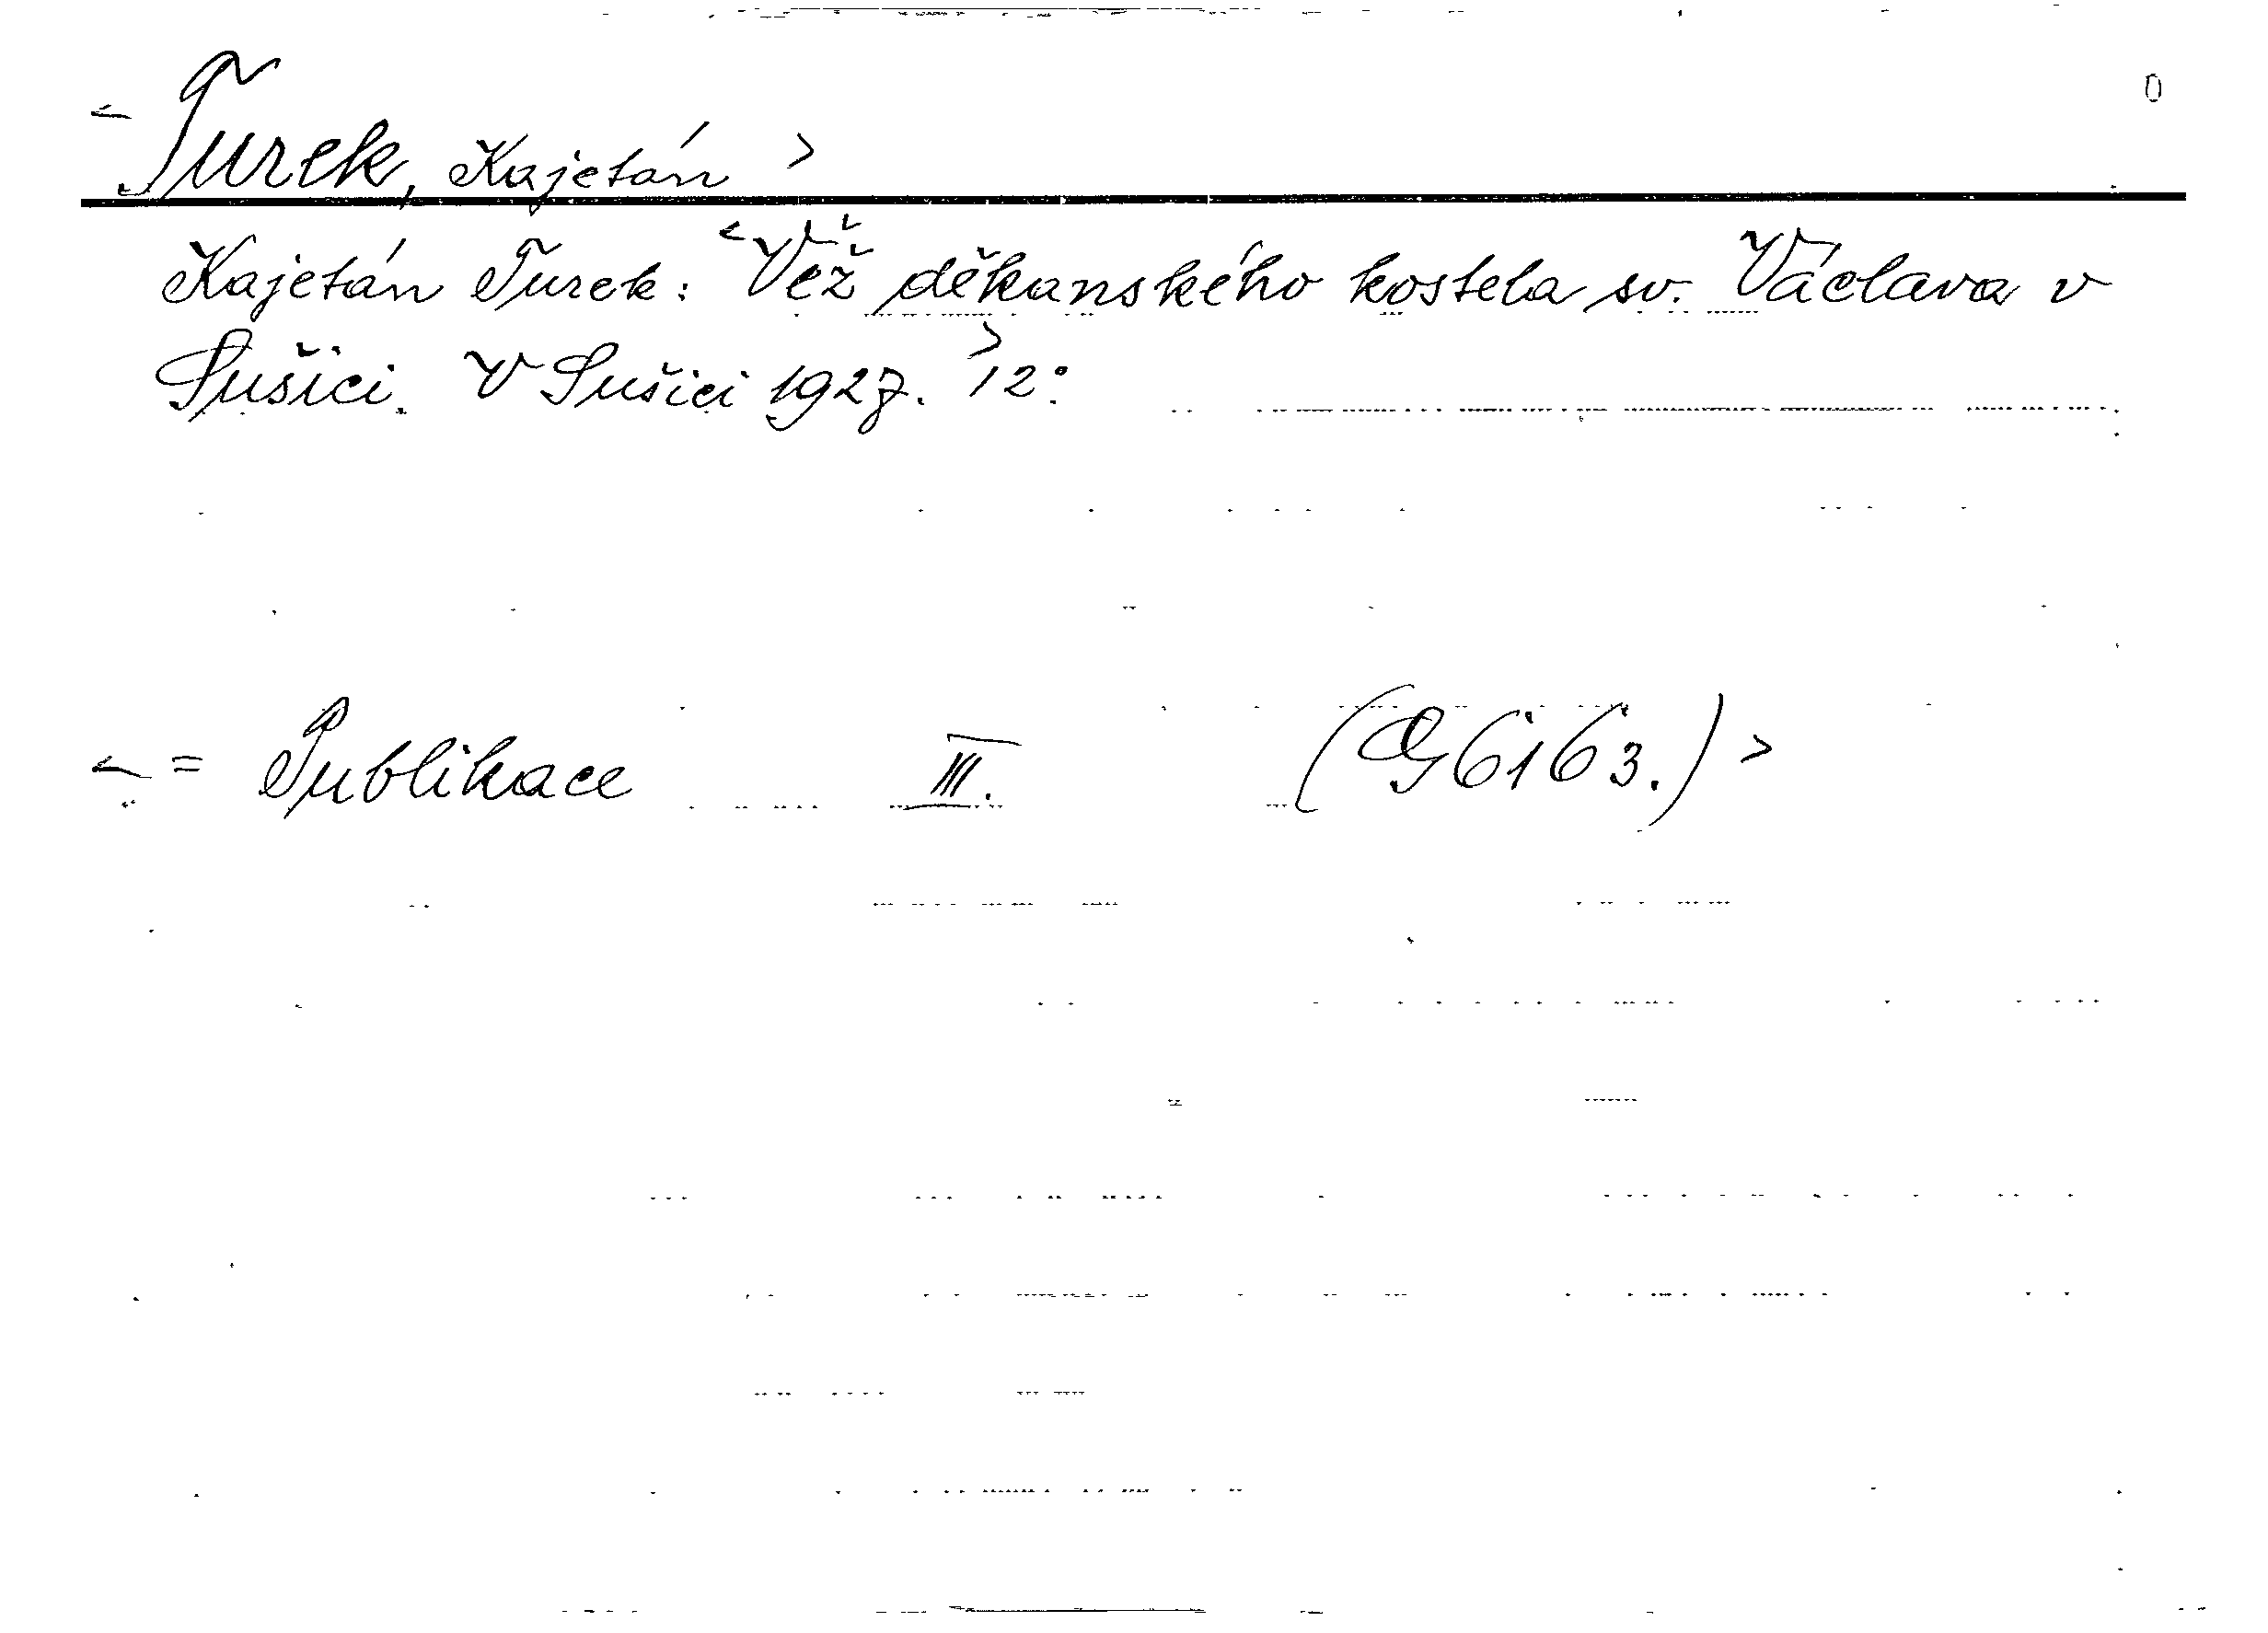 < Turek, Kajetán > 0
Kajetán Turek: <Věž děkanského kostela sv. Václava v
Sušici. V Sušici 1927.> 12°.
< = Publikace III. (G 6163.) >